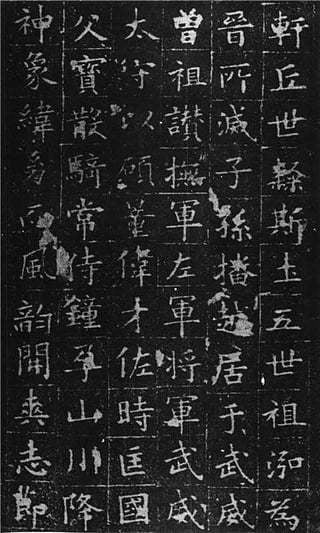 軒丘世斯土五世祖泓為
晉所滅子孫播越居于武威
曾祖讃撫軍左軍将軍武威
太守以碩偉才佐時匡國
父寶散騎常侍鐘乎山川降
神象緯風韻開爽志節